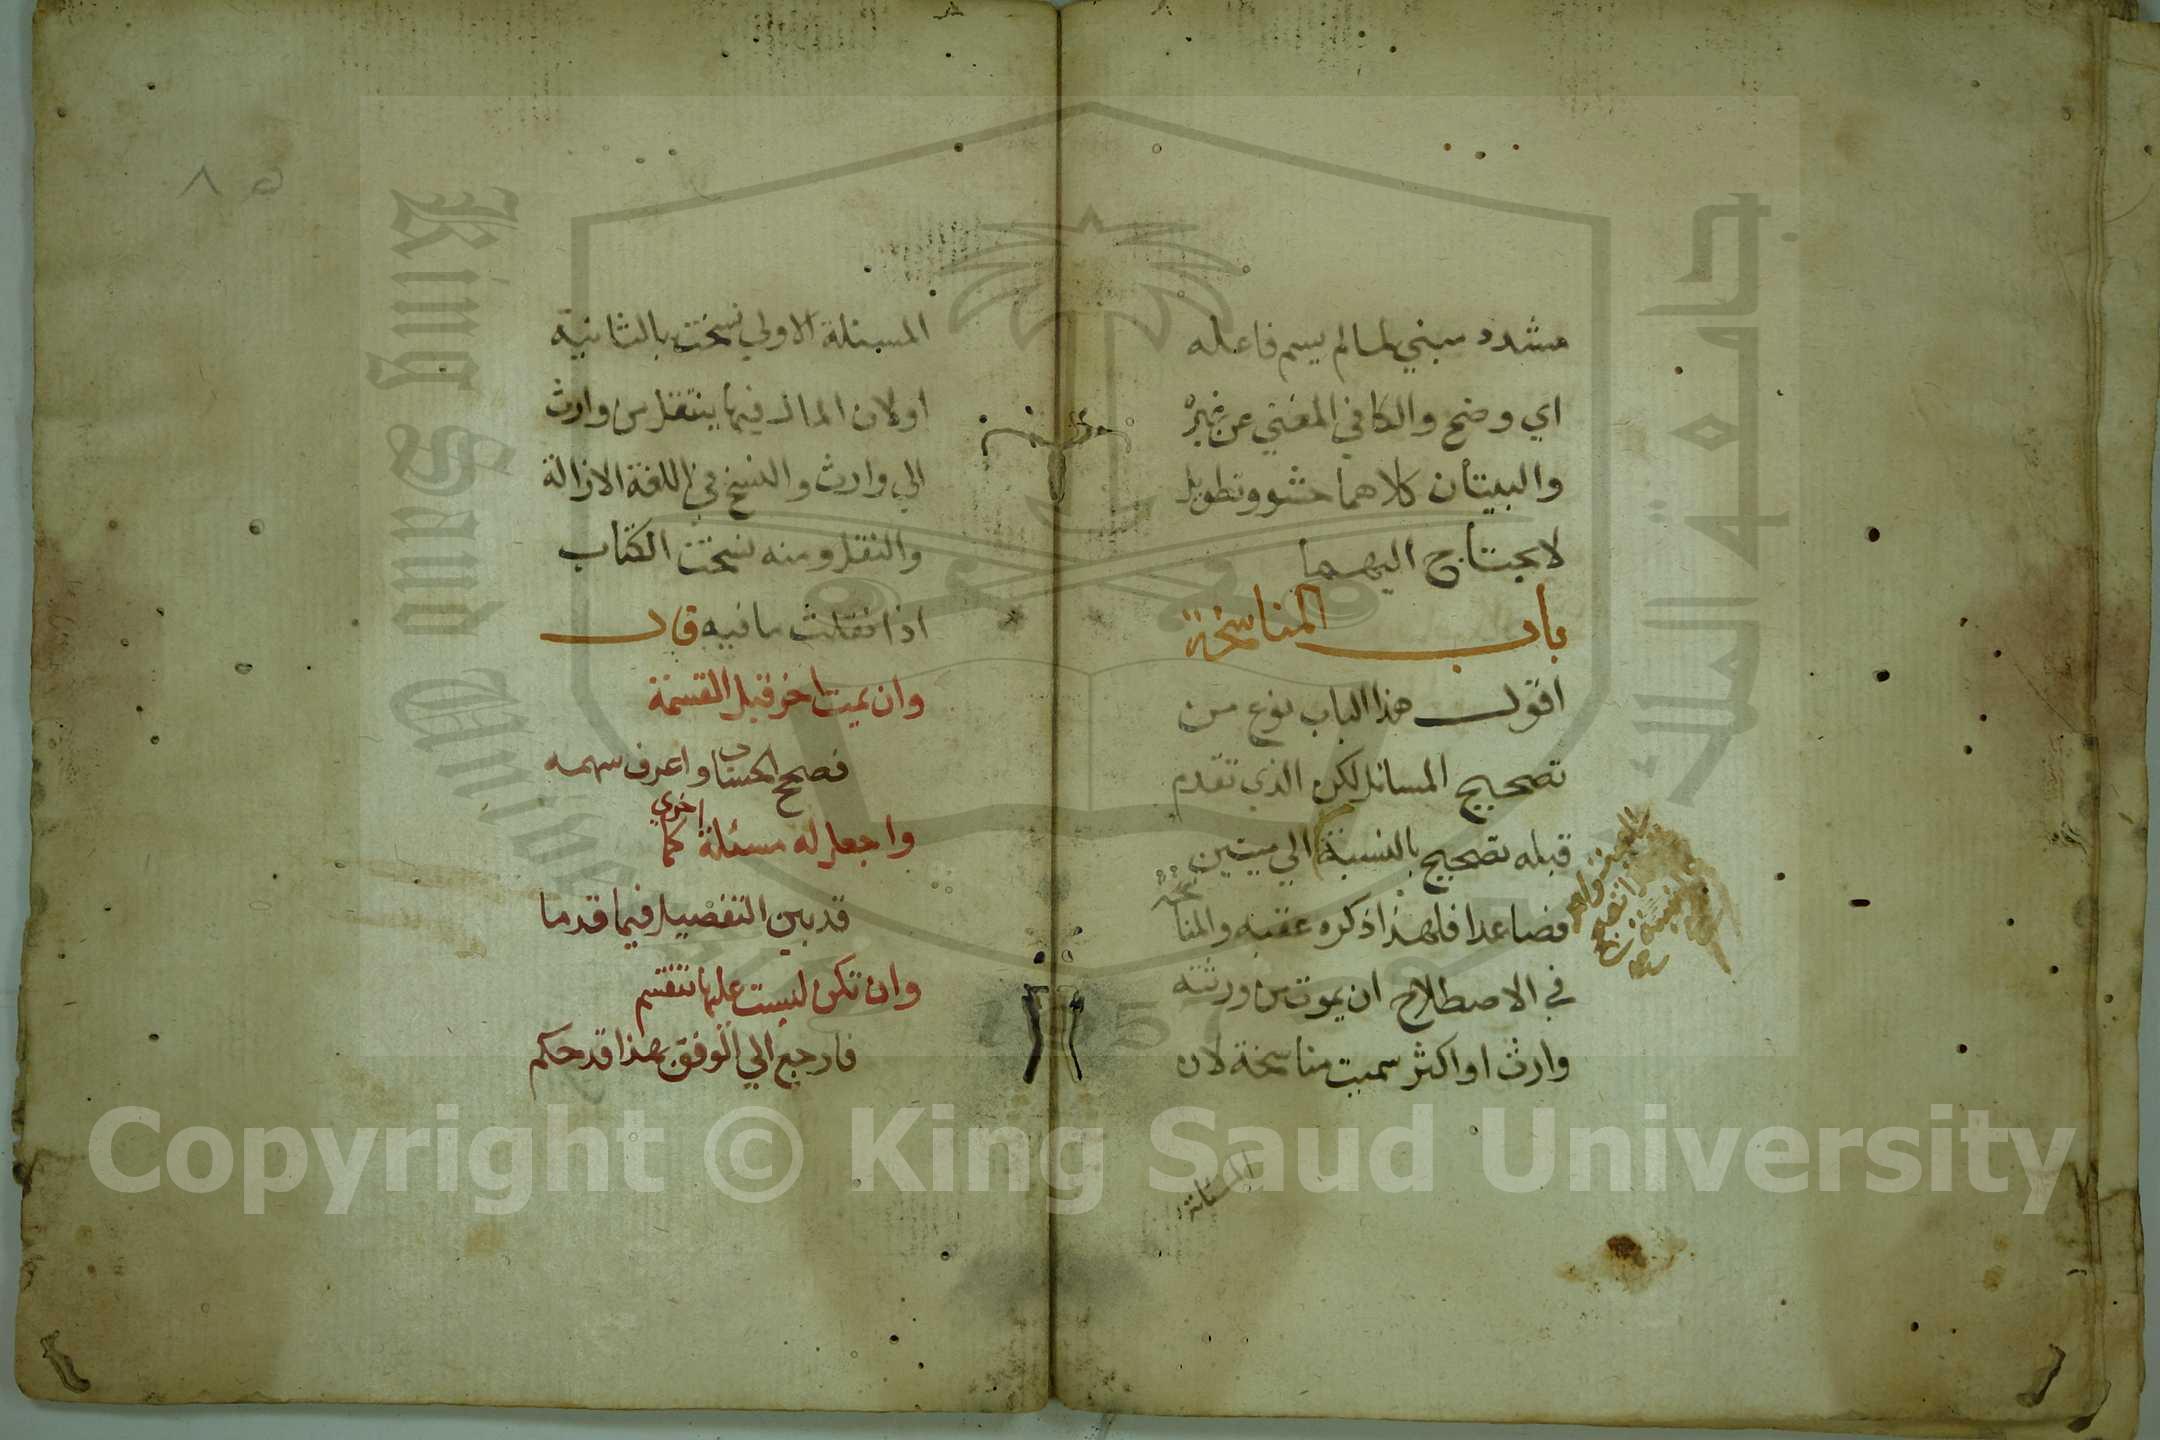 مشدد مبني لما لم يسم فاعله
اي وضح والكافي المغني عن غيره
والبيتان كلاهما حشو وتطويل
لا يحتاج اليهما
باب المناسخة
اقول هذا الباب نوع من
تصحيح المسائل لكن الذي تقدم
قبله تصحيح بالنسبة الي ميتين
فصاعدا فلهذا ذكره عقبه والمناسخة
في الاصطلاح ان يموت من ورثته
وارث او اكثر سميت مناسخة لان
المسئلة
٨٥
المسئلة الاولي نسخت بالثانية
اولان المال فيها ينتقل من وارث
الي وارث والنسخ في اللغة الازالة
والنقل ومنه نسخت الكتاب
اذا نقلت ما فيه قال
وان يمت اخر قبل القسمة
فصحح الحساب واعرف سهمه
واجعل له مسئلة اخري كما
قد بين التفصيل فيما قدما
وان تكن ليست عليها تنقسم
فارجع الي الوفق بهذا قد حكم
King Saud University
جامعة الملك سعود
1957
Copyright © King Saud University